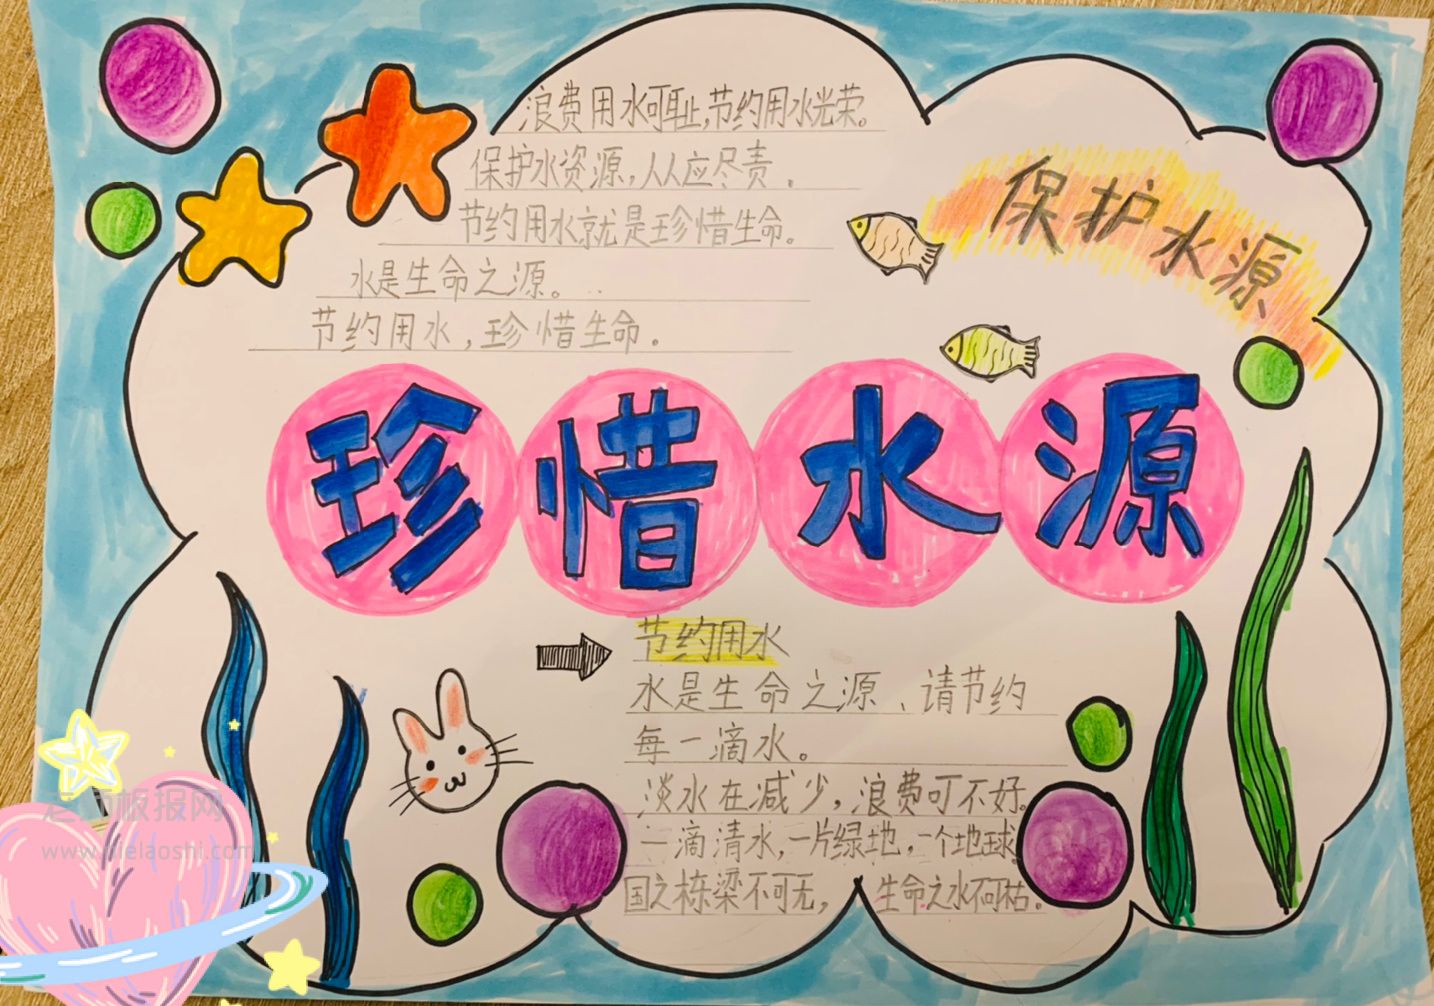 浪费用水可耻,节约用水光荣。
保护水资源,人人应尽责.
节约用水就是珍惜生命。
水是生命之源。
节约用水,珍惜生命.
保护水源
珍惜水源
节约用水
水是生命之源、请节约
每一滴水。
淡水在减少,浪费可不好。
一滴清水,一片绿地,一个地球
国之栋梁不可无,生命之水不可枯.
板报网